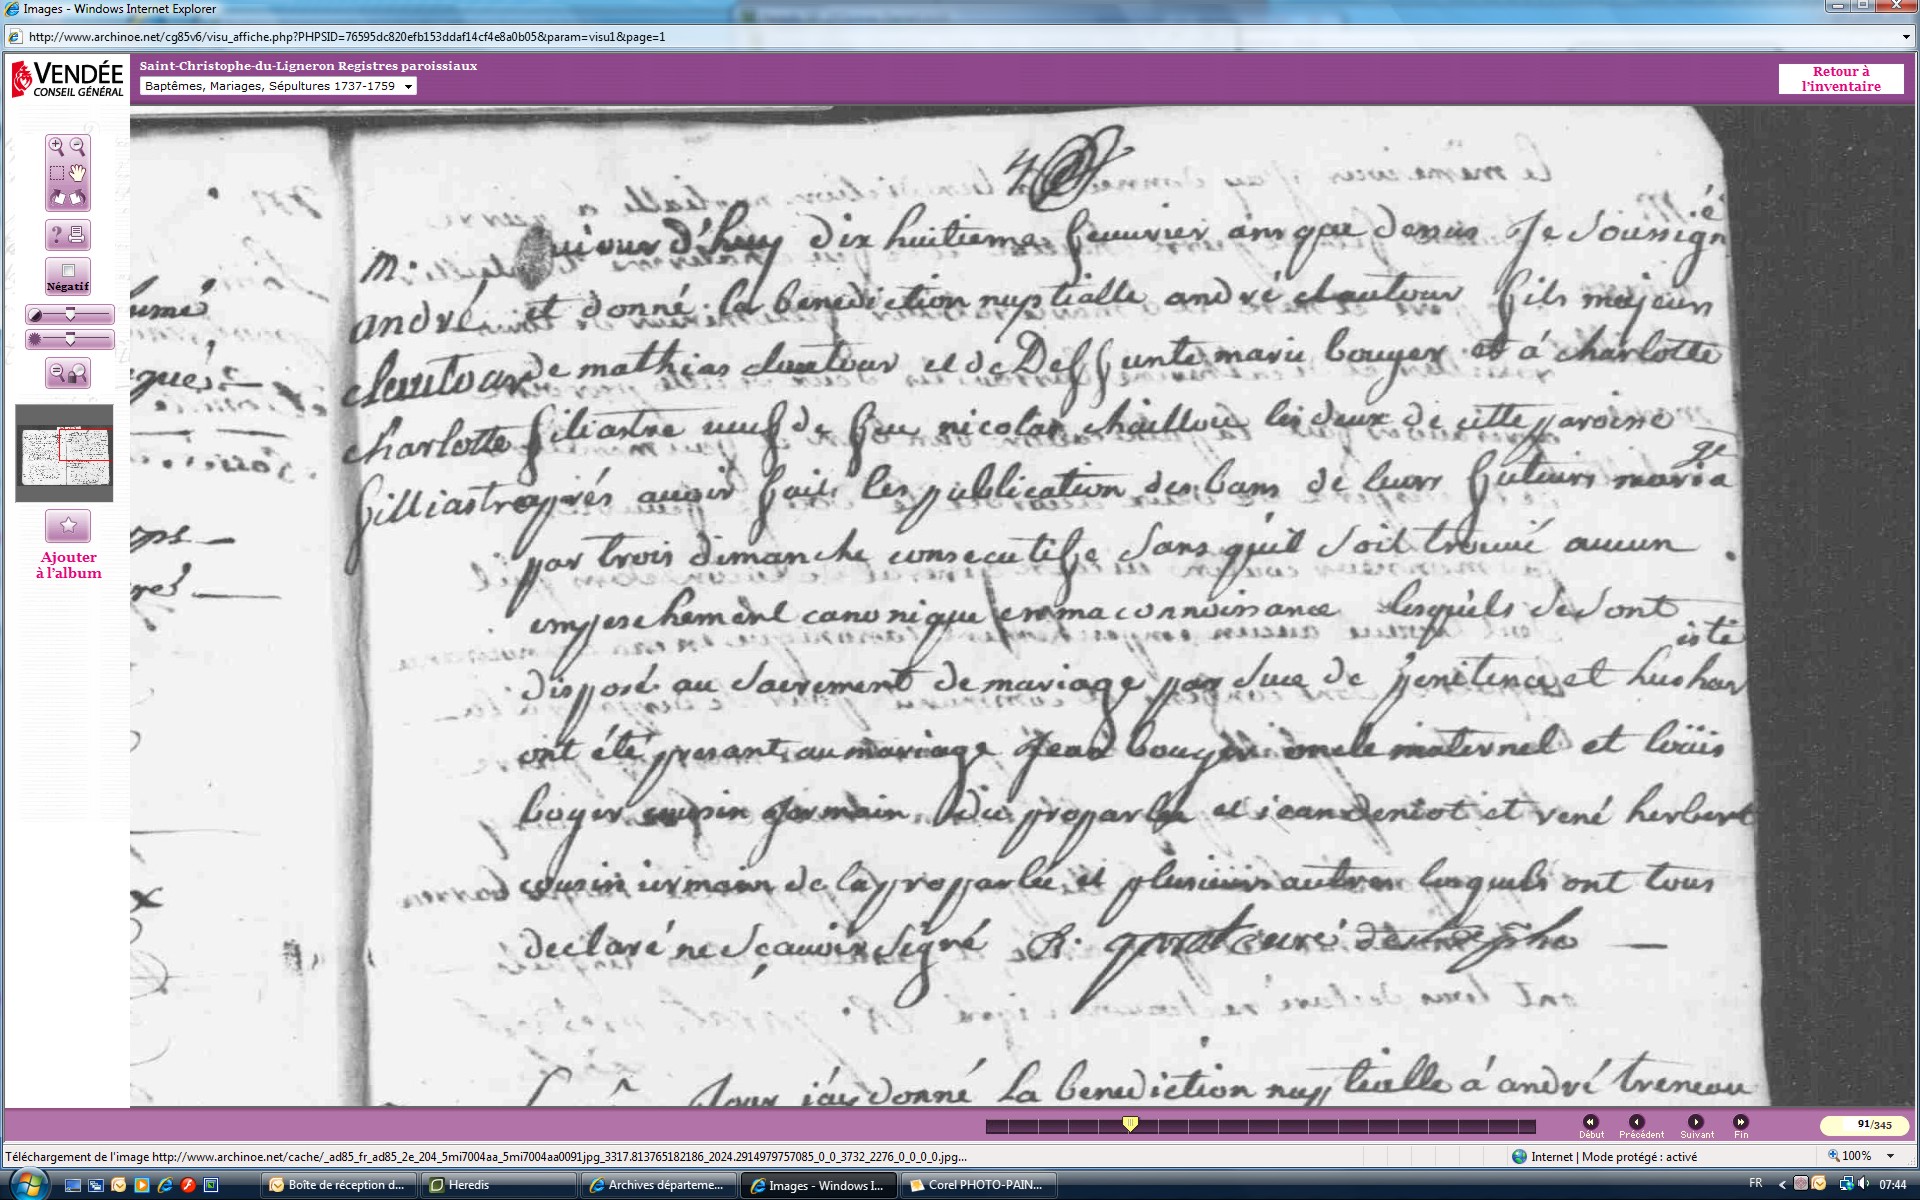 Images - Windows Internet Explorer
http://www.archinoe.net/cg85v6/visu_affiche.php?PHPSID=76595dc820efb153ddaf14cf4e8a0b05&param=visu1&page=1
VENDÉE
CONSEIL GÉNÉRAL
Saint-Christophe-du-Ligneron Registres paroissiaux
Baptêmes, Mariages, Sépultures 1737-1759
Retour à
l'inventaire
Négatif
Ajouter
à l'album
m:
andré
clautour
charlotte
filliastre
dix huitieme feuvrier ans que desus Je soussigné
et donné la benediction nuptialle andré clautour fils majeur
de mathias clautour et de Deffunte marie bouyer et á charlotte
filiastre veufe de feu nicolas chaillou les deux de cette paroisse
aprés avoir fait les publication des bans de leurs futeurs mariage
par trois dimanche consecutife sans qu'il soit trouvé aucun
empeschement canonique en ma connoissance lesquels se sont
disposé au sacrement de mariage par de penitence et
ont été presant au mariage Jean bouyer oncle maternel et loüis
boyer cousin germain du proparlé et jean deniot et rené herbert
cousin germain de la proparlée et plusieurs autres lesquels ont tous
declaré ne sçauoir signé R. curé
jour j'ay donné la benediction nuptialle á andré treneau
Début
Précédent
Suivant
Fin
91/345
Téléchargement de l'image http://www.archinoe.net/cache/_ad85_fr_ad85_2e_204_5mi7004aa_5mi7004aa0091jpg_3317.813765182186_2024.2914979757085_0_0_3732_2276_0_0_0_0.jpg...
Internet | Mode protégé : activé
100%
Boîte de réception d...
Heredis
Archives départeme...
Images - Windows I...
Corel PHOTO-PAIN...
FR
07:44